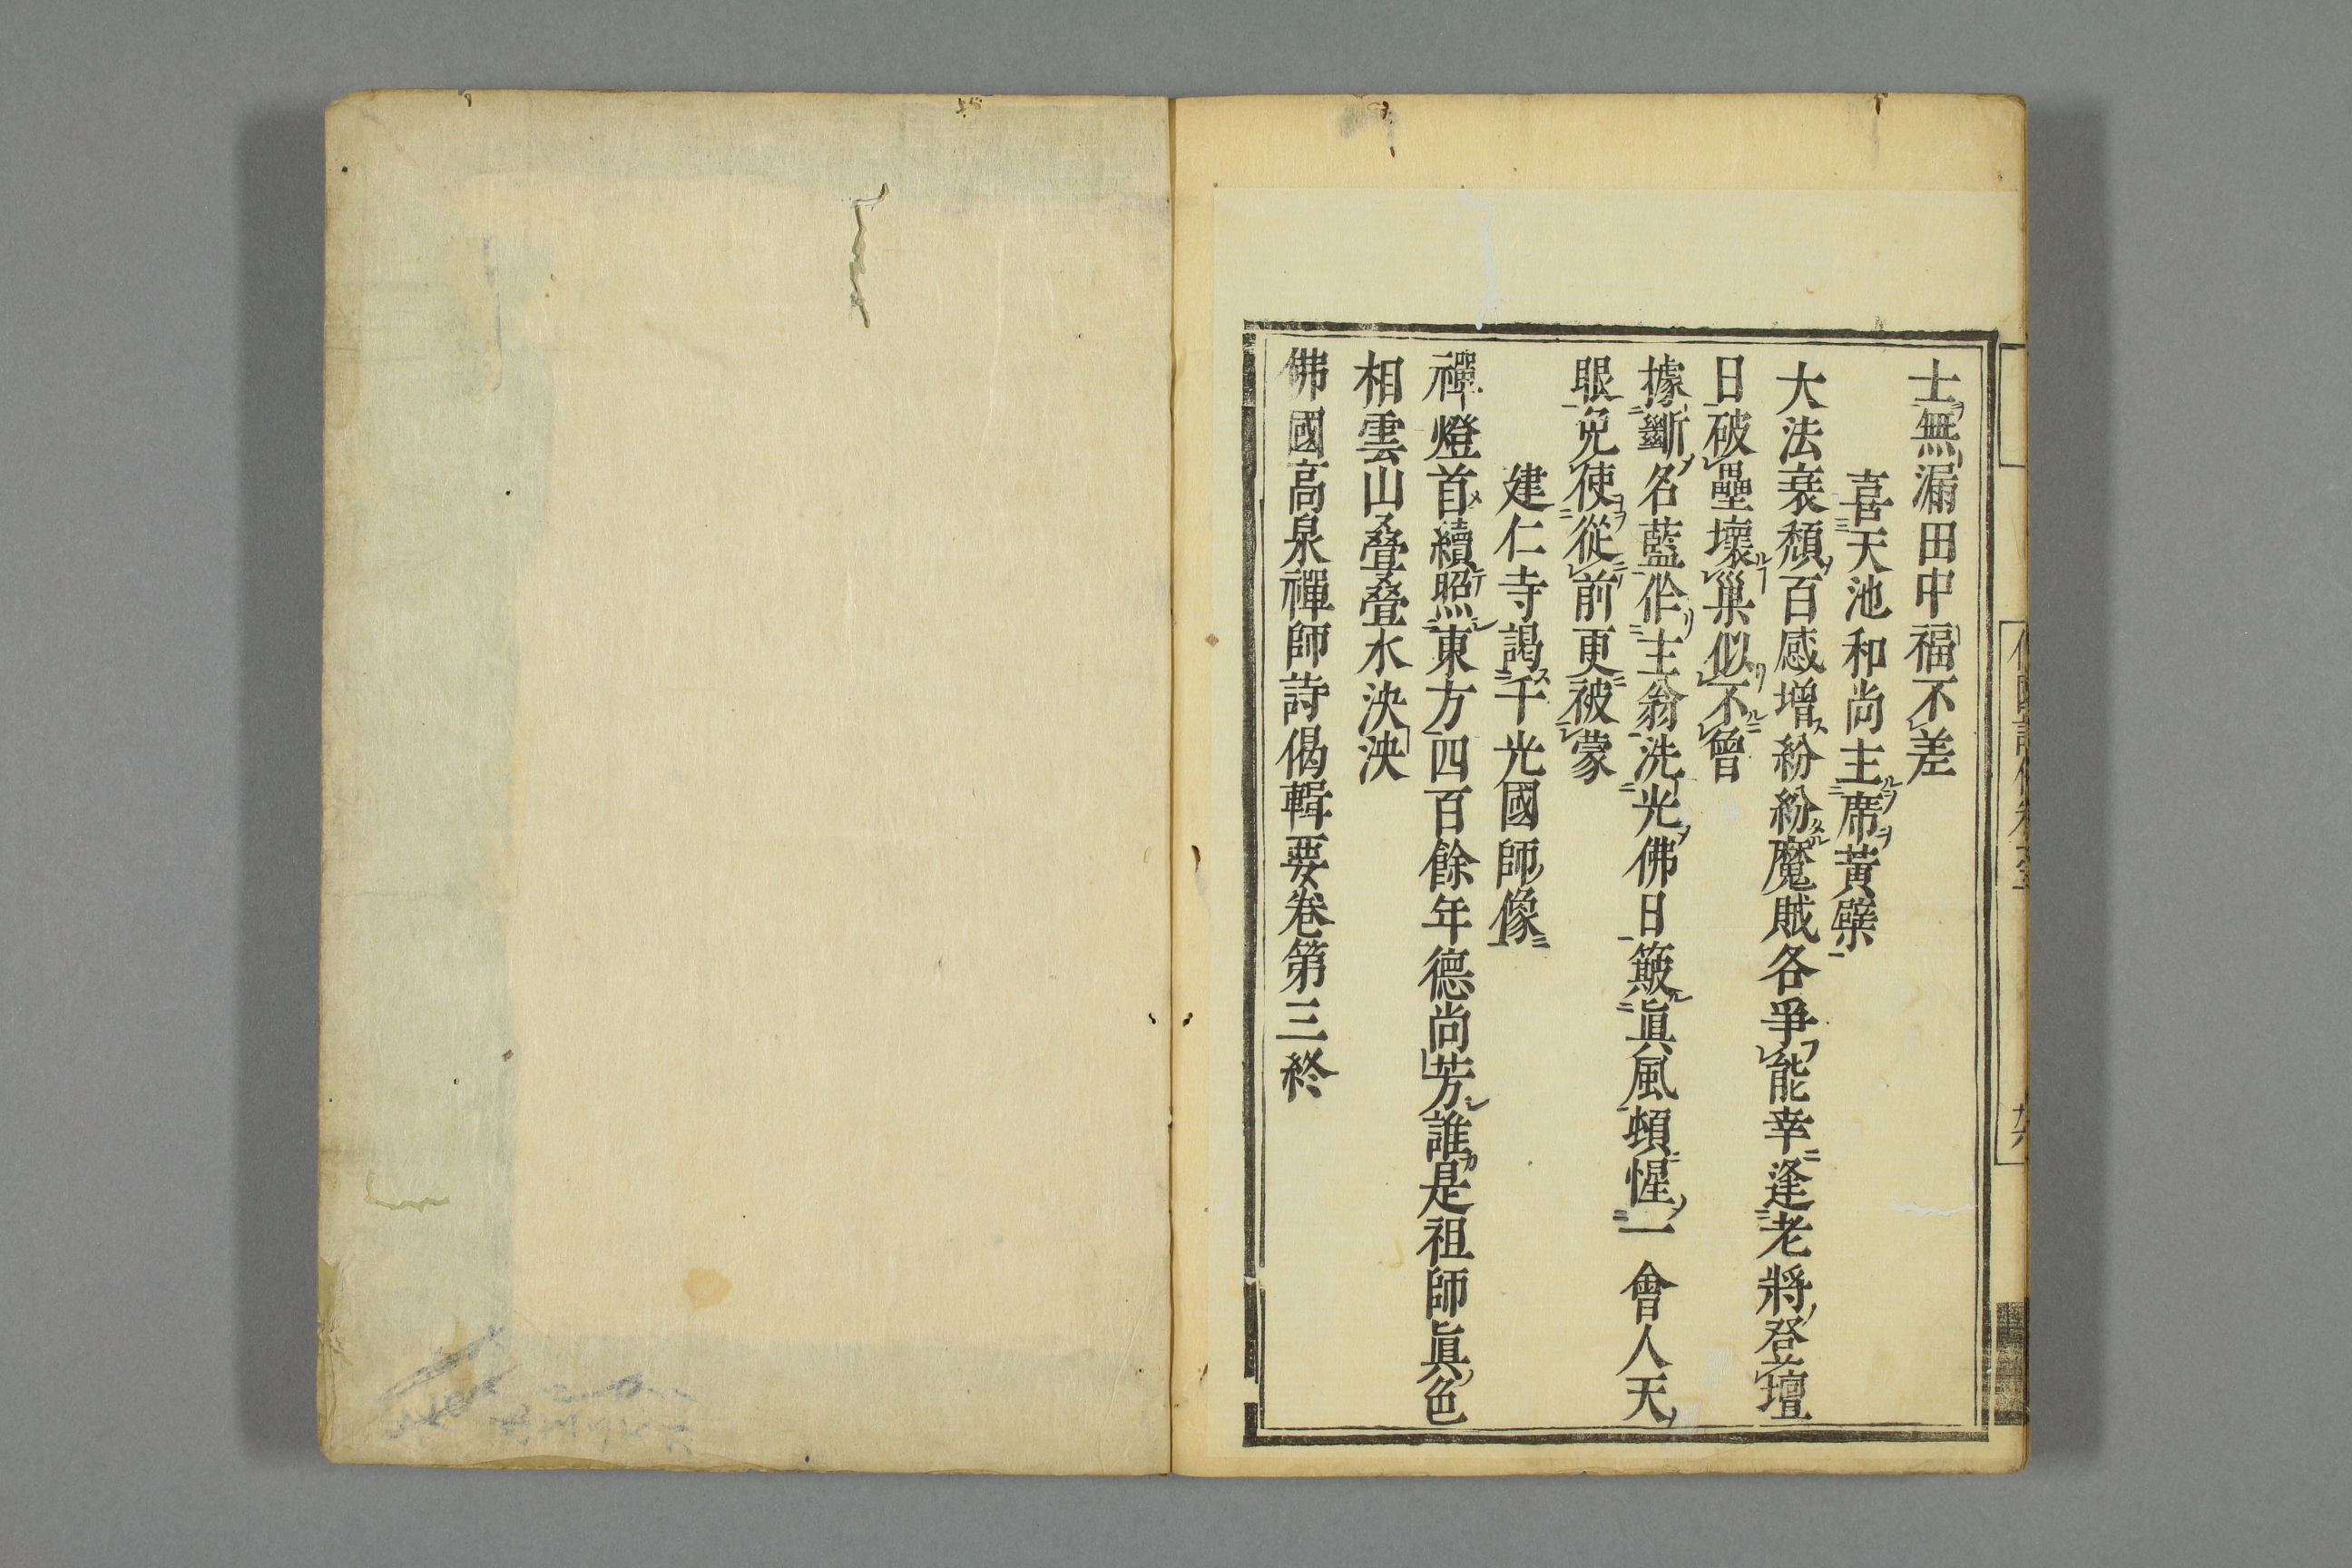 士無漏田中福不差
喜天池和尚主席黃檗
大法衰頽百感增紛紛魔賊各爭能幸逢老將登壇
日破壘壞巢似不曾
據斷名藍㐰主翁洗光佛日簸眞風頓惺一會人天
眼免使從前更被蒙
建仁寺謁千光國師像
禪燈首續照東方四百餘年德尚芳誰是祖師眞色
相雲山疊疊水泱泱
佛國高泉禪師詩偈輯要卷第三終